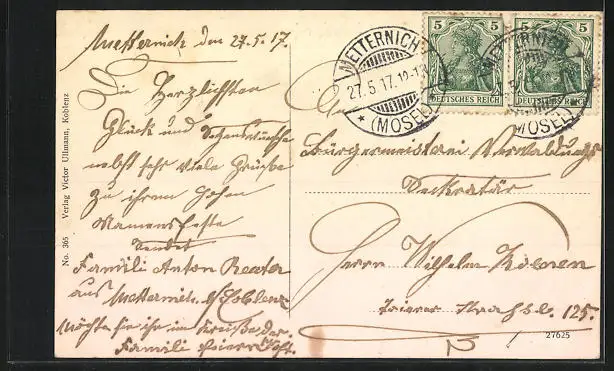 Metternich den 27.5.17.
Die Herzlichsten
Glück und Segenswünsche
nebst sehr viele Grüße
zu ihrem hohen
Namensfeste
Sendet
Familie Anton Reuter
aus Metternich b/Coblenz
Familie
An
Bürgermeisterei Verwaltungs
Seckretär
Herrn Wilhelm Koenen
Trierer Straße 125.
METTERNICH
27.5.17.
* (MOSEL)
METTERNICH
(MOSEL)
5 5
DEUTSCHES REICH
5 5
DEUTSCHES REICH
No. 365 Verlag Victor Ullmann, Koblenz
27625